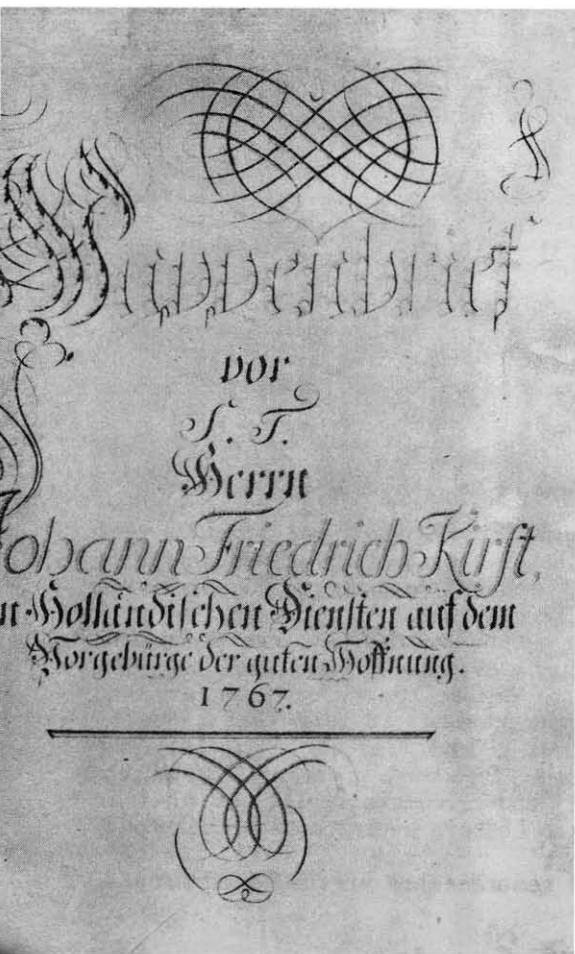 Wappenbrief
vor
S. T.
Herrn
Johann Friedrich Kirst,
in Holländischen Diensten auf dem
Vorgebürge der guten Hoffnung.
1767.